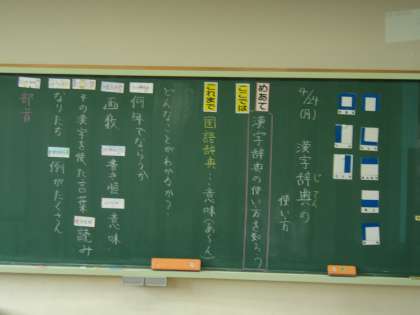 4/24(月)
漢字辞典の
じてん
使い方
めあて
ここでは
漢字辞典の使い方を知ろう
これまで
国語辞典…意味
どんなことがわかるか?
何年でならうか
画数
書き順
意味
その漢字を使った言葉
読み
なりたち
例がたくさん
部首